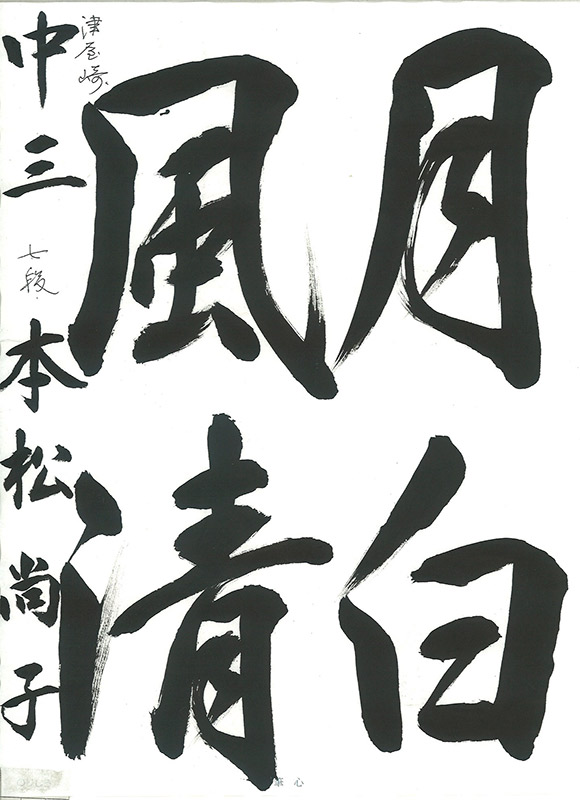 月白
風清
津屋崎
中三 七段 本松尚子